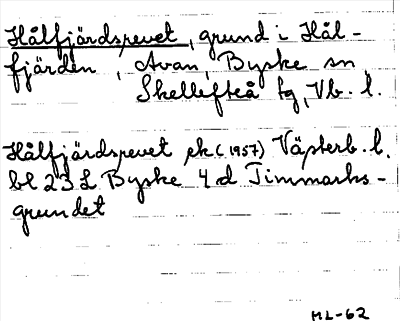 Hålfjärdsrevet, grund i Hål-
fjärden, Avan, Byske sn,
Skellefteå tg, Vb. l.
Hålfjärdsrevet ek (1957) Västerb. l.
bl 23 L Byske 4 d Timmarks-
grundet
ML-62